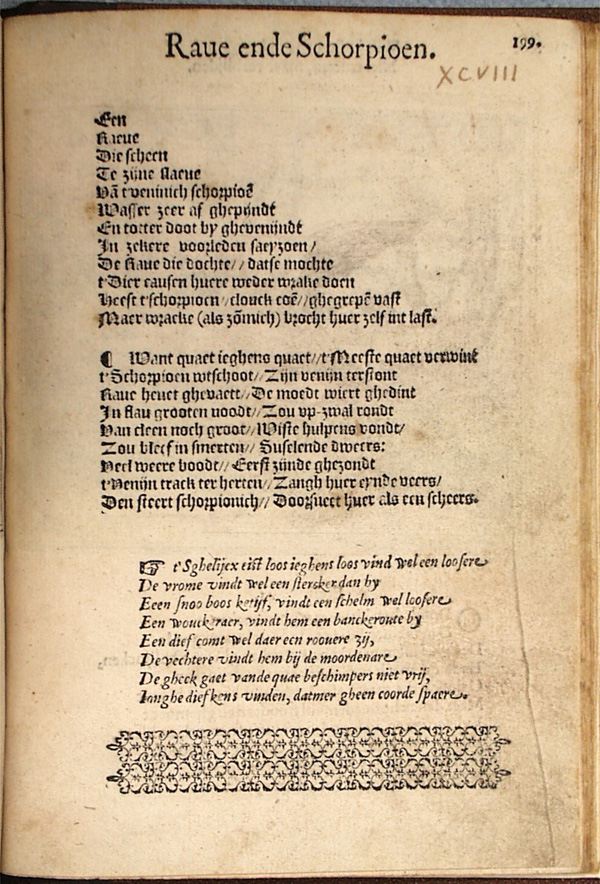 Raue ende Schorpioen.
199.
XCVIII
Een
Raeue
Die scheen
Te zijne slaeue
Vā t'veninich schorpioē
Wasser zeer af ghepijndt
En totter doot by ghevenijndt
In zekere voorleden saeyzoen/
De Raue die dochte// datse mochte
t'Dier causen huere weder wrake doen
Heeft t'schorpioen// clouck coē// ghegrepē vast
Maer wracke (als zōmich) brocht huer zelf int last.
¶ Want quaet ieghens quaet// t'Meeste quaet verwint
t'Schorpioen wtschoot// Zijn venijn terstont
Raue heuet ghevaett// De moedt wiert ghedint
In slau grooten noodt// Zou vp-zwal rondt
Van cleen noch groot// Wiste hulpens vondt/
Zou bleef in smerten// Suselende dweers:
Veel weere boodt// Eerst zijnde ghezondt
t'Venijn track ter herten// Zangh huer eynde veers/
Den steert schorpionich// Doorsneet huer als een scheers.
☞ t'Sghelijcx eist loos ieghens loos vind wel een loosere
De vrome vindt wel een stercker dan hy
Eeen snoo boos kerijf, vindt een schelm wel loosere
Een wouckeraer, vindt hem een banckeroute by
Een dief comt wel daer een roovere zij,
De vechtere vindt hem bij de moordenare
De gheck gaet vande quae beschimpers niet vrij,
Ianghe diefkens vinden, datmer gheen coorde spaere.